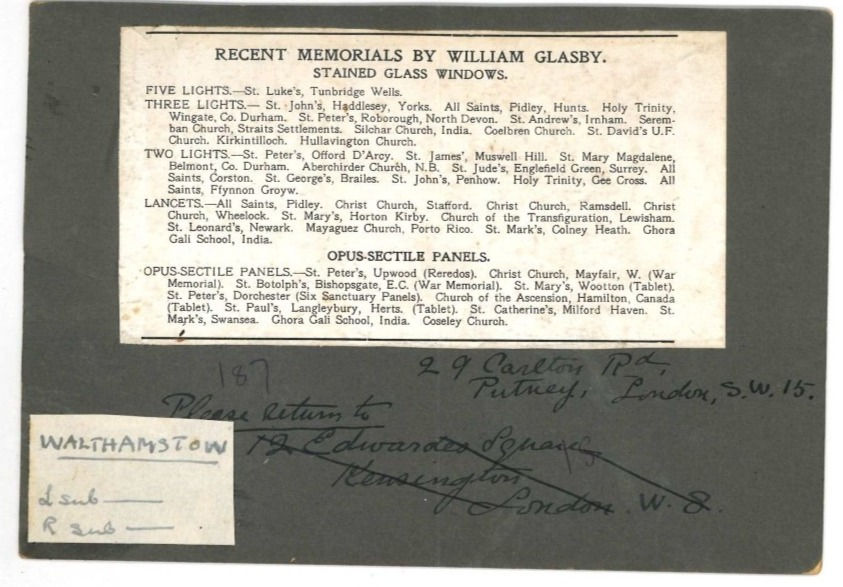 RECENT MEMORIALS BY WILLIAM GLASBY.
STAINED GLASS WINDOWS.
FIVE LIGHTS.—St. Luke's, Tunbridge Wells.
THREE LIGHTS.— St. John's, Haddlesey, Yorks. All Saints, Pidley, Hunts. Holy Trinity,
Wingate, Co. Durham. St. Peter's, Roborough, North Devon. St. Andrew's, Irnham. Serem-
ban Church, Straits Settlements. Silchar Church, India. Coelbren Church. St. David's U.F.
Church. Kirkintilloch. Hullavington Church.
TWO LIGHTS.—St. Peter's, Offord D'Arcy. St. James', Muswell Hill. St. Mary Magdalene,
Belmont, Co. Durham. Aberchirder Church, N.B. St. Jude's, Englefield Green, Surrey. All
Saints, Corston. St. George's, Brailes. St. John's, Penhow. Holy Trinity, Gee Cross. All
Saints, Ffynnon Groyw.
LANCETS.—All Saints, Pidley. Christ Church, Stafford. Christ Church, Ramsdell. Christ
Church, Wheelock. St. Mary's, Horton Kirby. Church of the Transfiguration, Lewisham.
St. Leonard's, Newark. Mayaguez Church, Porto Rico. St. Mark's, Colney Heath. Ghora
Gali School, India.
OPUS-SECTILE PANELS.
OPUS-SECTILE PANELS.—St. Peter's, Upwood (Reredos). Christ Church, Mayfair, W. (War
Memorial). St. Botolph's, Bishopsgate, E.C. (War Memorial). St. Mary's, Wootton (Tablet).
St. Peter's, Dorchester (Six Sanctuary Panels). Church of the Ascension, Hamilton, Canada
(Tablet). St. Paul's, Langleybury, Herts. (Tablet). St. Catherine's, Milford Haven. St.
Mark's, Swansea. Ghora Gali School, India. Coseley Church.
187
29 Carlton Rd,
Putney, London, S.W. 15.
Please return to
12 Edwardes Square
Kensington
London. W. 8.
WALTHAMSTOW
L sub —
R sub —